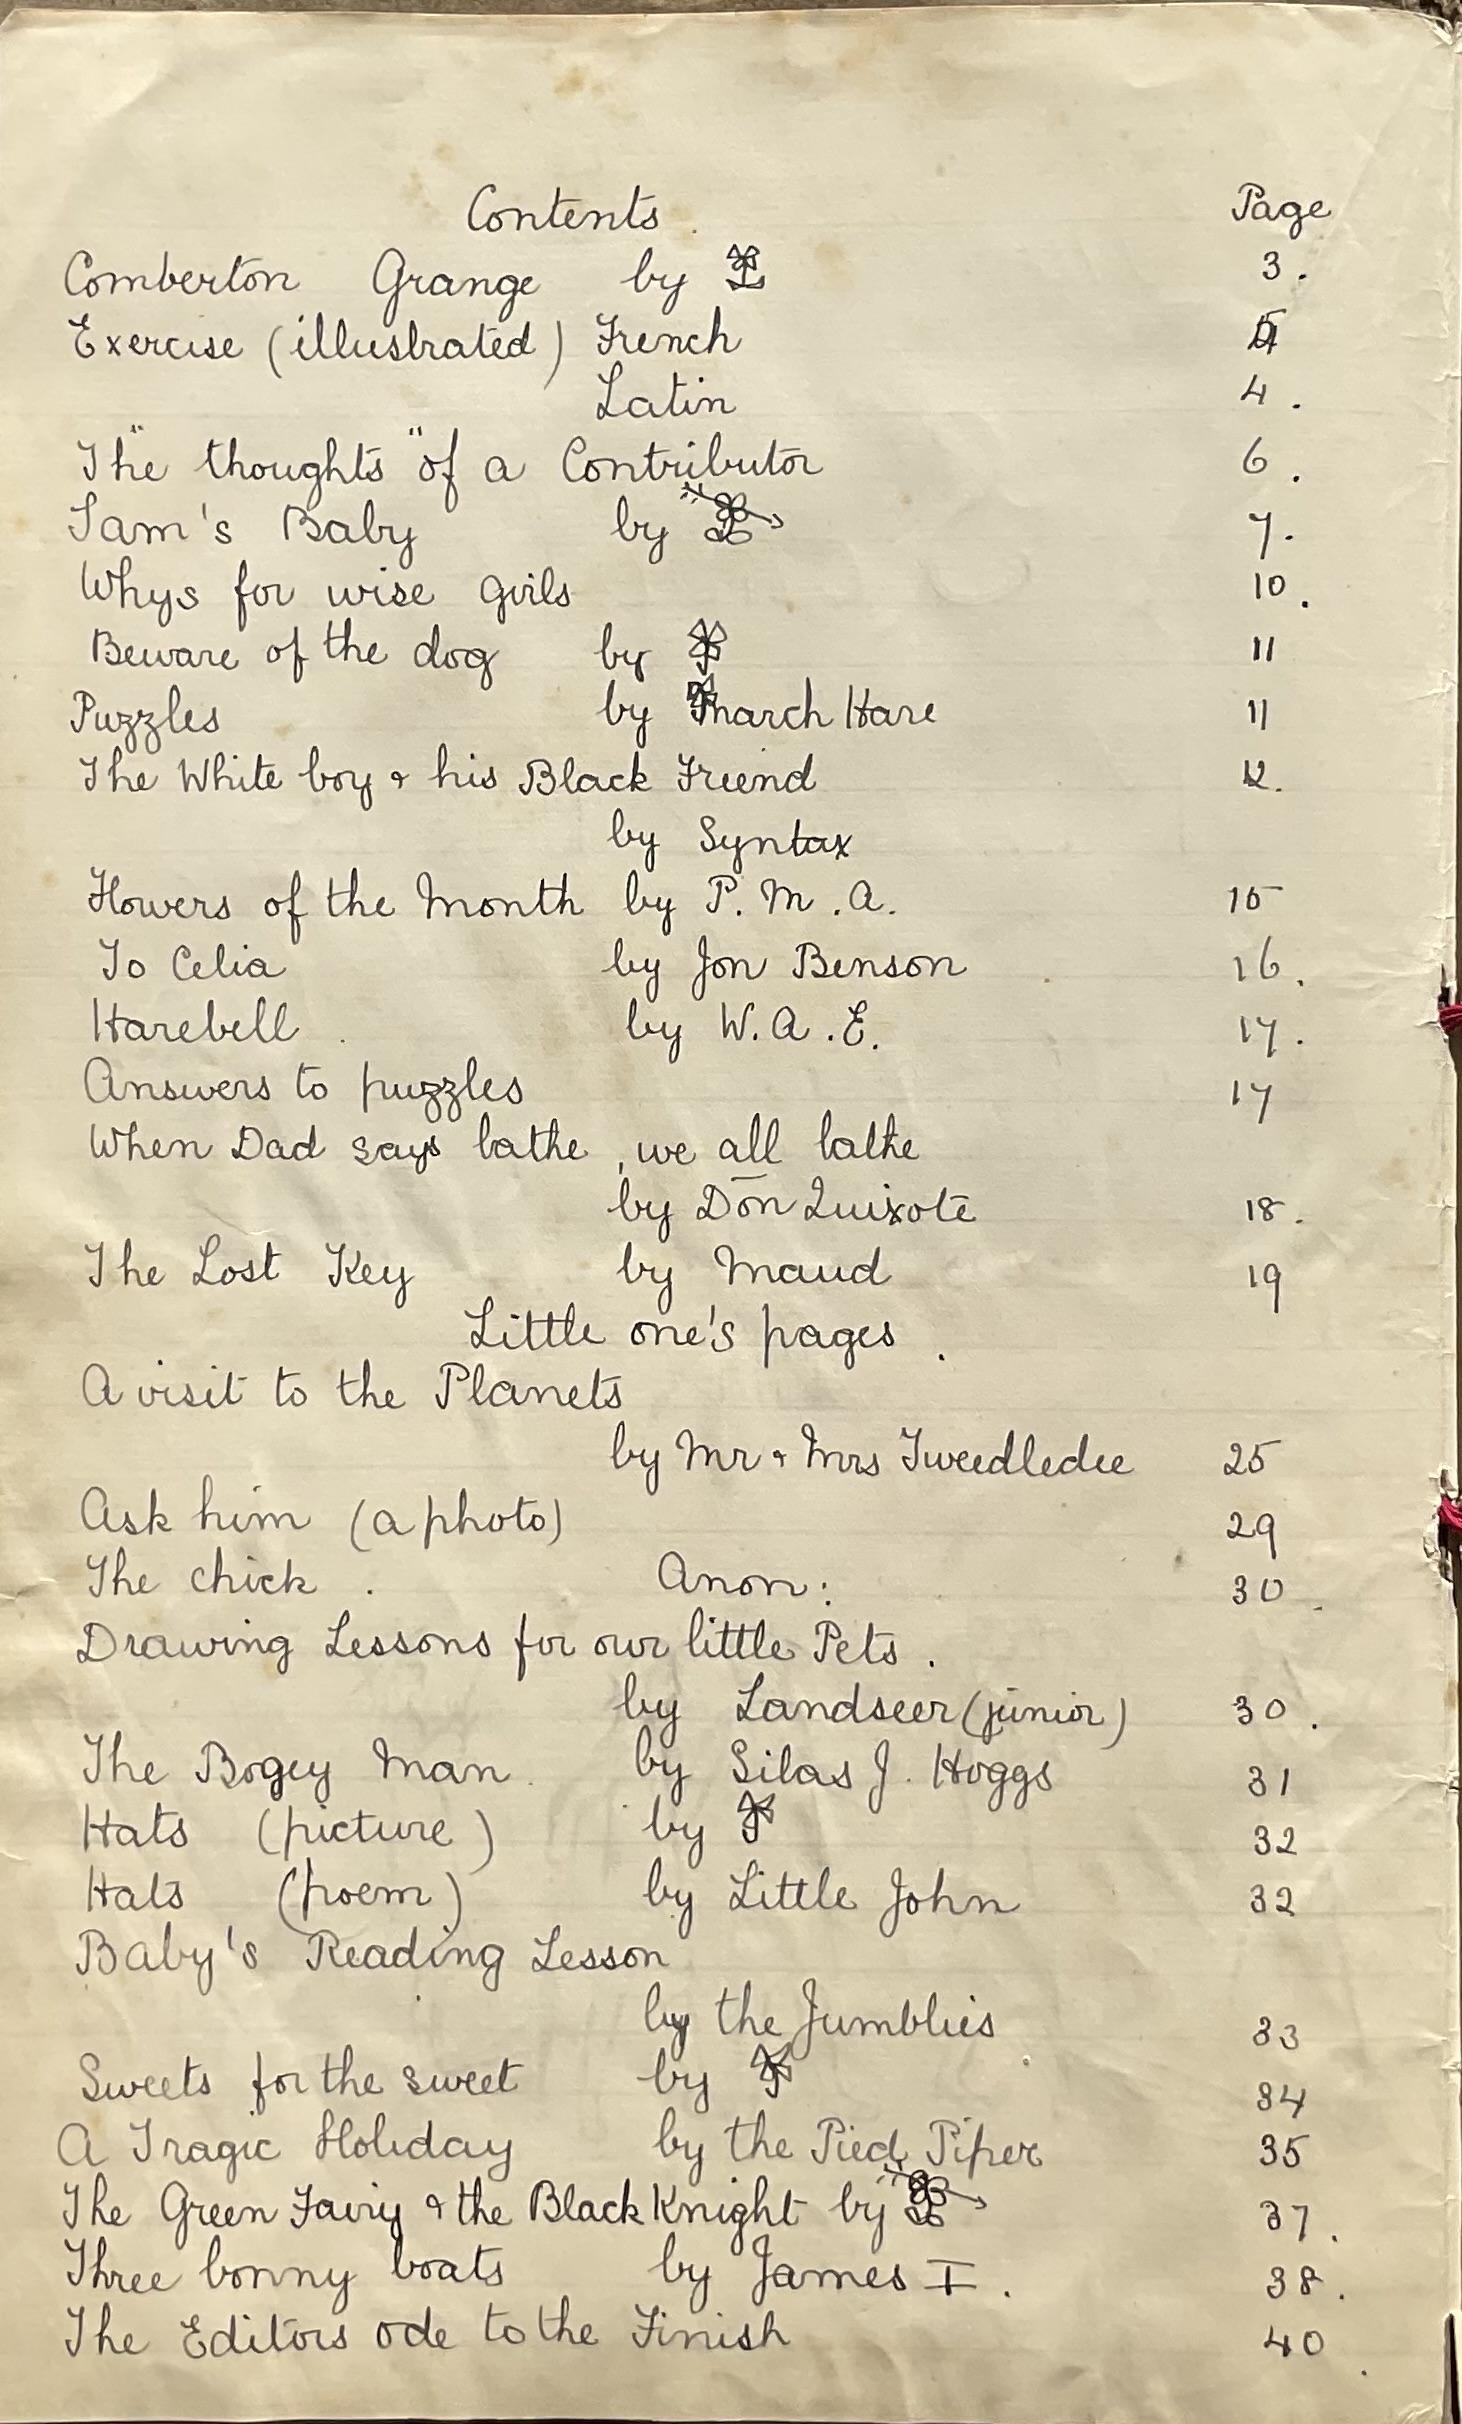 Contents. Page
Comberton Grange by 3.
Exercise (illustrated) French
Latin 4.
The "thoughts" of a Contributor 6.
Sam's Baby by 7.
Whys for wise girls 10.
Beware of the dog by 11
Puzzles by March Hare 11
The White boy & his Black Friend 12.
by Syntax
Flowers of the Month by P. M. A. 15
To Celia by Jon Benson 16.
Harebell. by W. A. E. 17.
Answers to puzzles 17
When Dad says bathe, we all bathe
by Don Quixote 18.
The Lost Key by Maud 19
Little one's pages.
A visit to the Planets
by Mr & Mrs Tweedledee 25
Ask him (a photo) 29
The chick. Anon: 30.
Drawing Lessons for our little Pets.
by Landseer (junior) 30.
The Bogey Man. by Silas J. Hoggs 31
Hats (picture) by 32
Hats (poem) by Little John 32
Baby's Reading Lesson
by the Jumblies 33
Sweets for the sweet by 34
A Tragic Holiday by the Pied Piper 35
The Green Fairy & the Black Knight by 37.
Three bonny boats by James I. 38.
The Editors ode to the Finish 40.